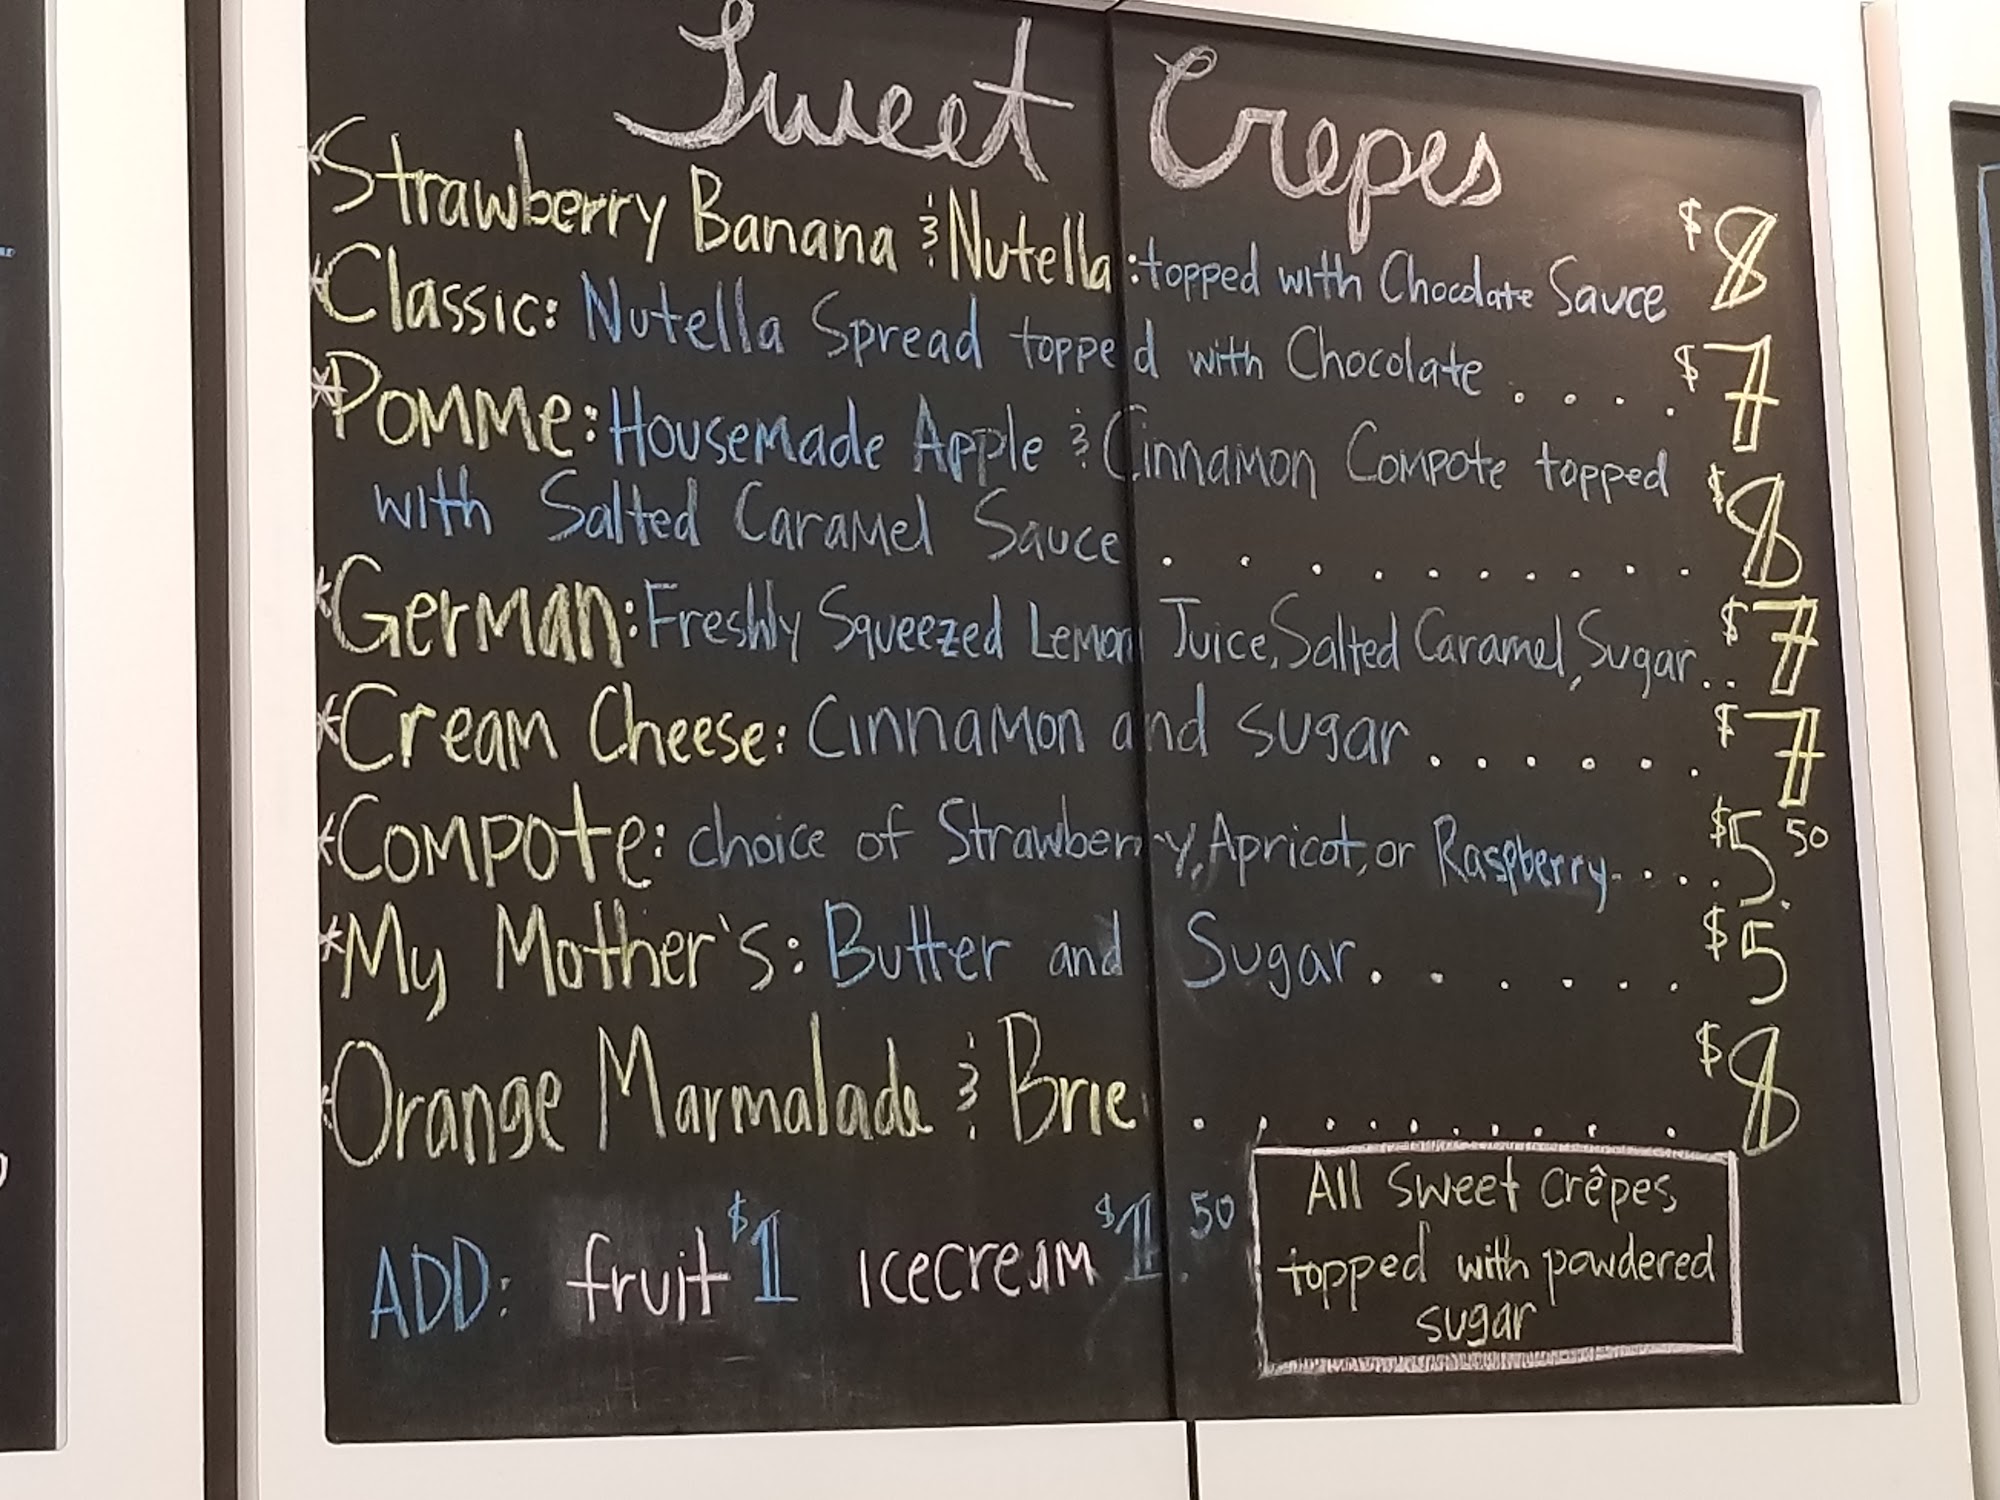 Sweet Crepes
*Strawberry Banana & Nutella: topped with Chocolate Sauce $8
*Classic: Nutella Spread topped with Chocolate .... $7
*Pomme: Housemade Apple & Cinnamon Compote topped
with Salted Caramel Sauce .......... $8
*German: Freshly Squeezed Lemon Juice, Salted Caramel, Sugar.. $7
*Cream Cheese: Cinnamon and sugar...... $7
*Compote: choice of Strawberry, Apricot, or Raspberry.... $5.50
*My Mother's: Butter and Sugar...... $5
*Orange Marmalade & Brie ......... $8
ADD: fruit $1 icecream $1.50
All sweet crêpes
topped with powdered
sugar